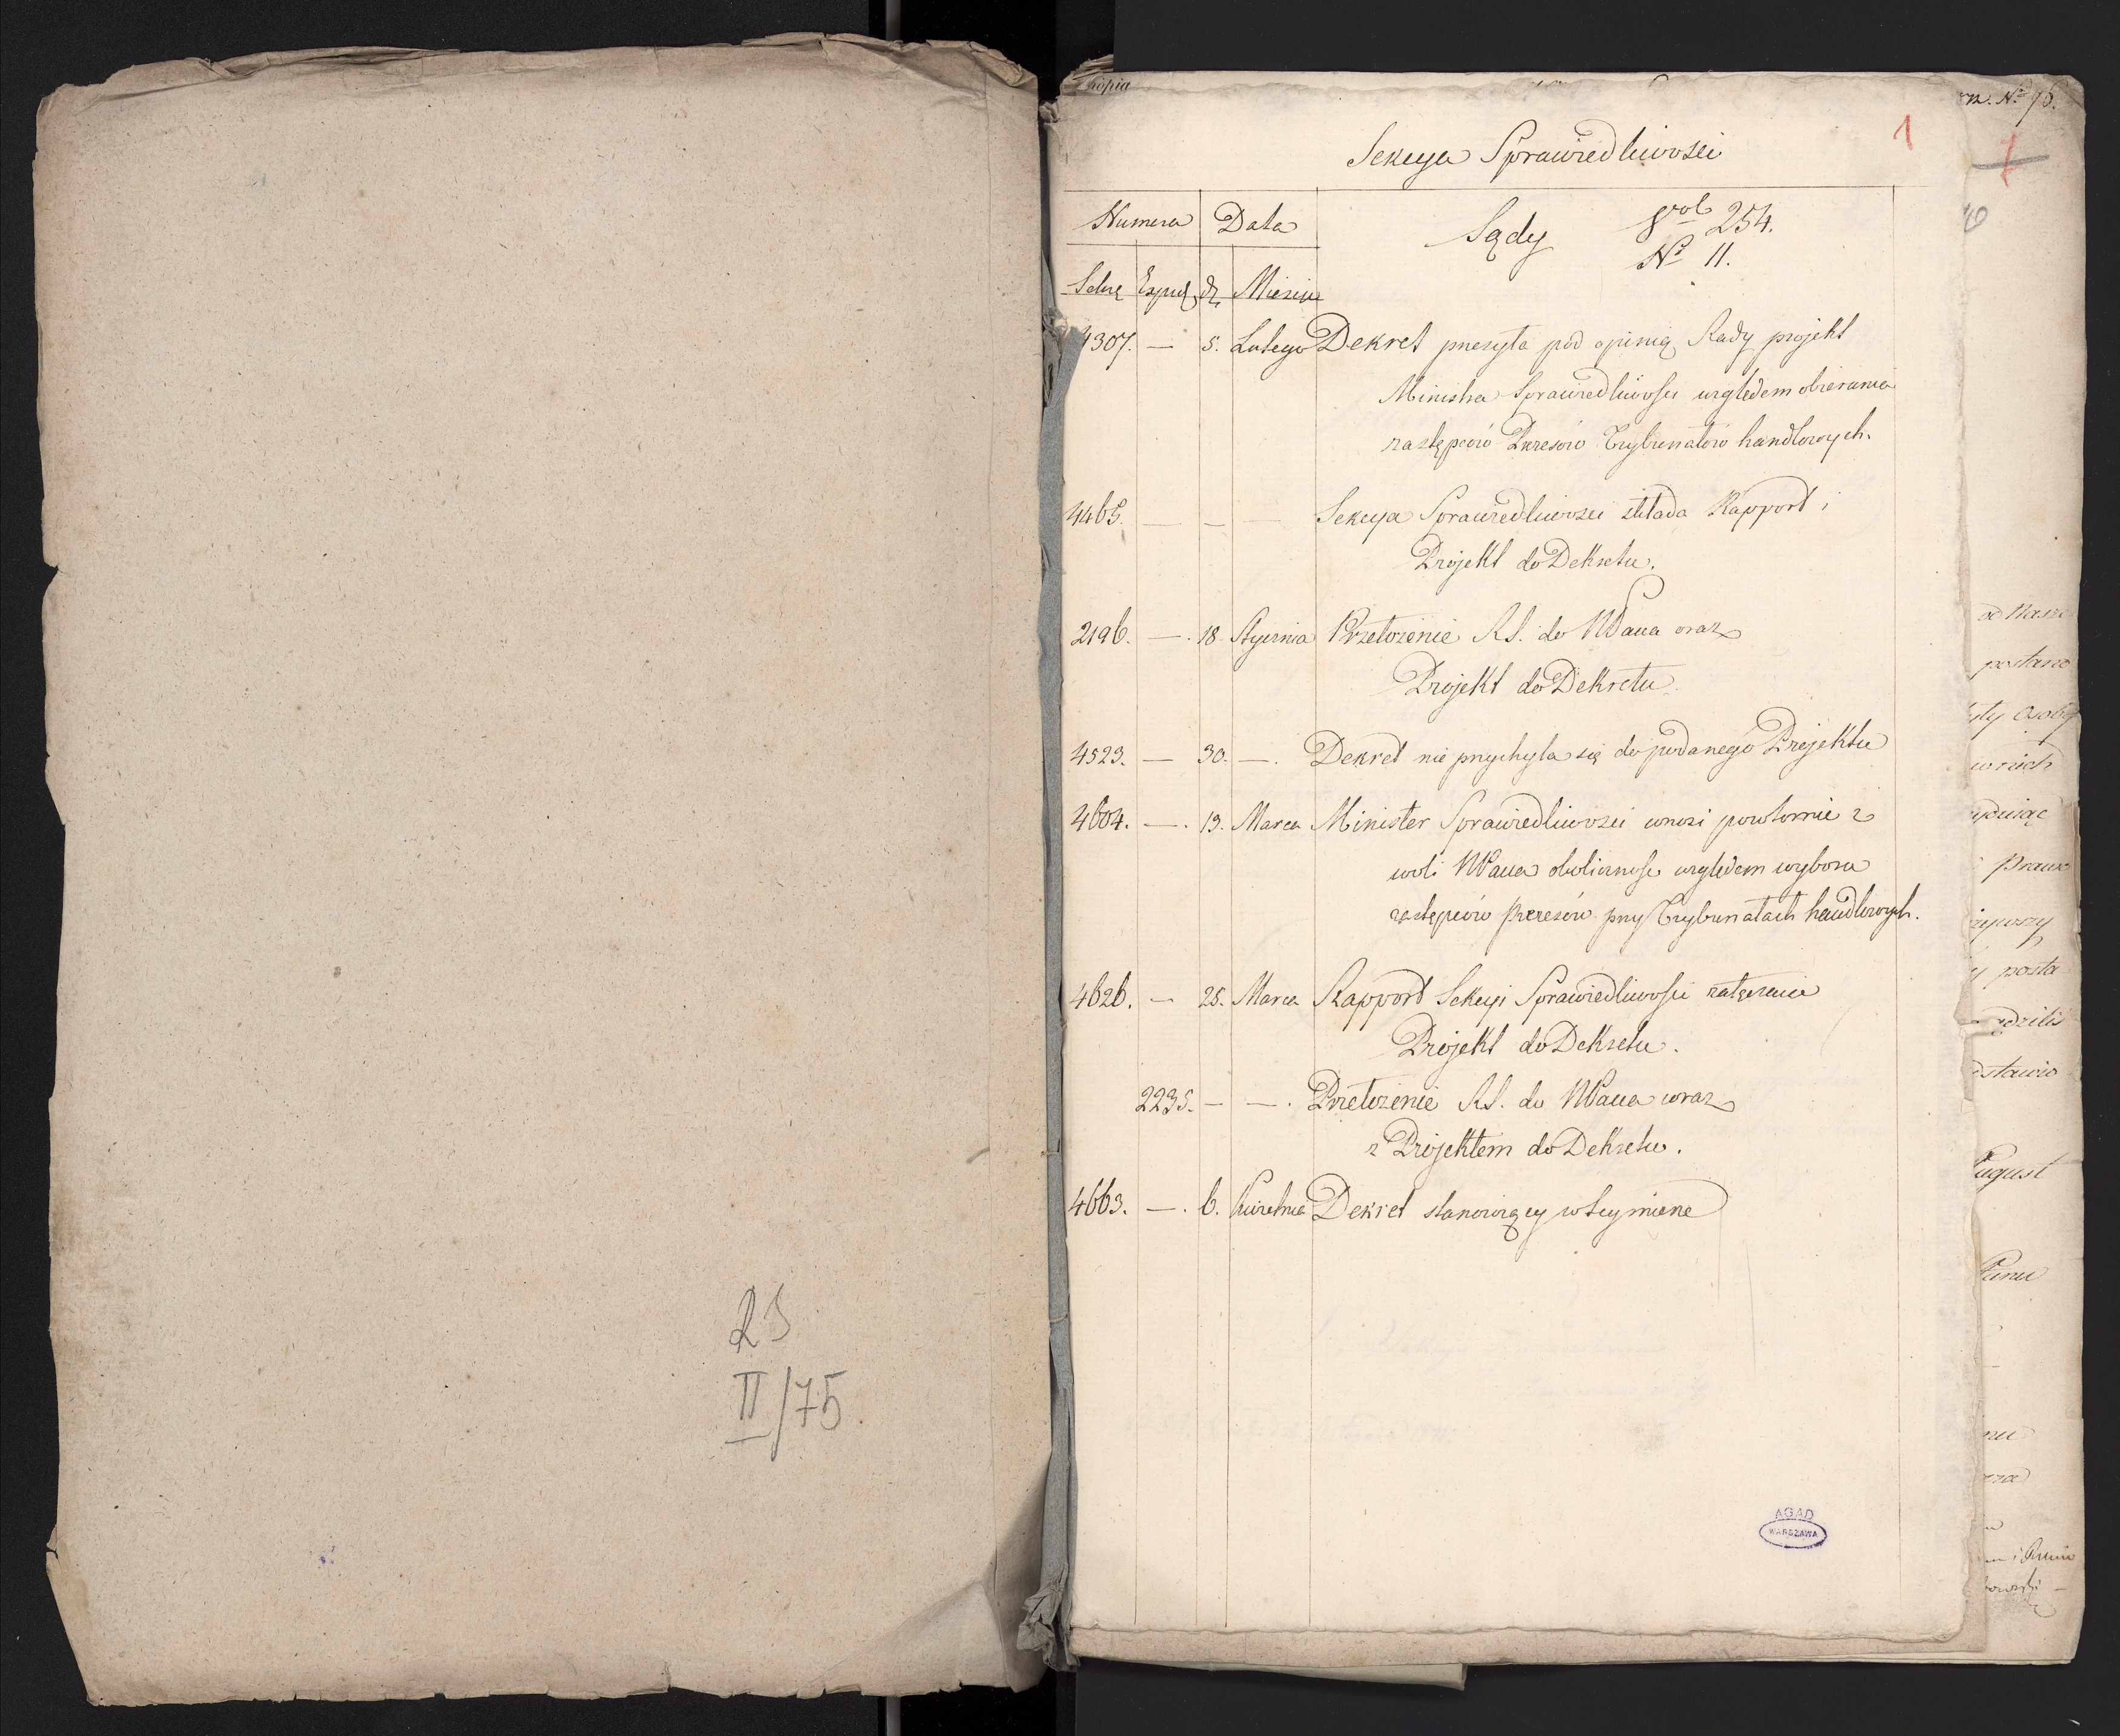 23
II/75.
kopia
№ 96.
1
1
Sekcya Sprawiedliwości
Numera Data
Sądy vol 254.
№ 11.
Miesiąc
4307. — 5. Lutego Dekret przesyła pod opinią Rady projekt
Ministra Sprawiedliwości względem obierania
zastępców Prezesów Trybunałów handlowych.
4465. — — — Sekcya Sprawiedliwości składa Rapport i
Projekt do Dekretu.
2196. — 18. Stycznia Przełożenie RS. do NPana oraz
Projekt do Dekretu.
4523. — 30. — Dekret nie przychyla się do podanego Projektu
4604. — 13. Marca Minister Sprawiedliwości wnosi powtornie z
woli NPana okoliczność względem wyboru
zastępców Prezesów przy Trybunałach handlowych.
4626. — 25. Marca Rapport Sekcyi Sprawiedliwości załącza
Projekt do Dekretu.
2235. — — Przełożenie RS. do NPana wraz
z Projektem do Dekretu.
4663. — 6. Kwietnia Dekret stanowiący w tey mierze
AGAD
WARSZAWA